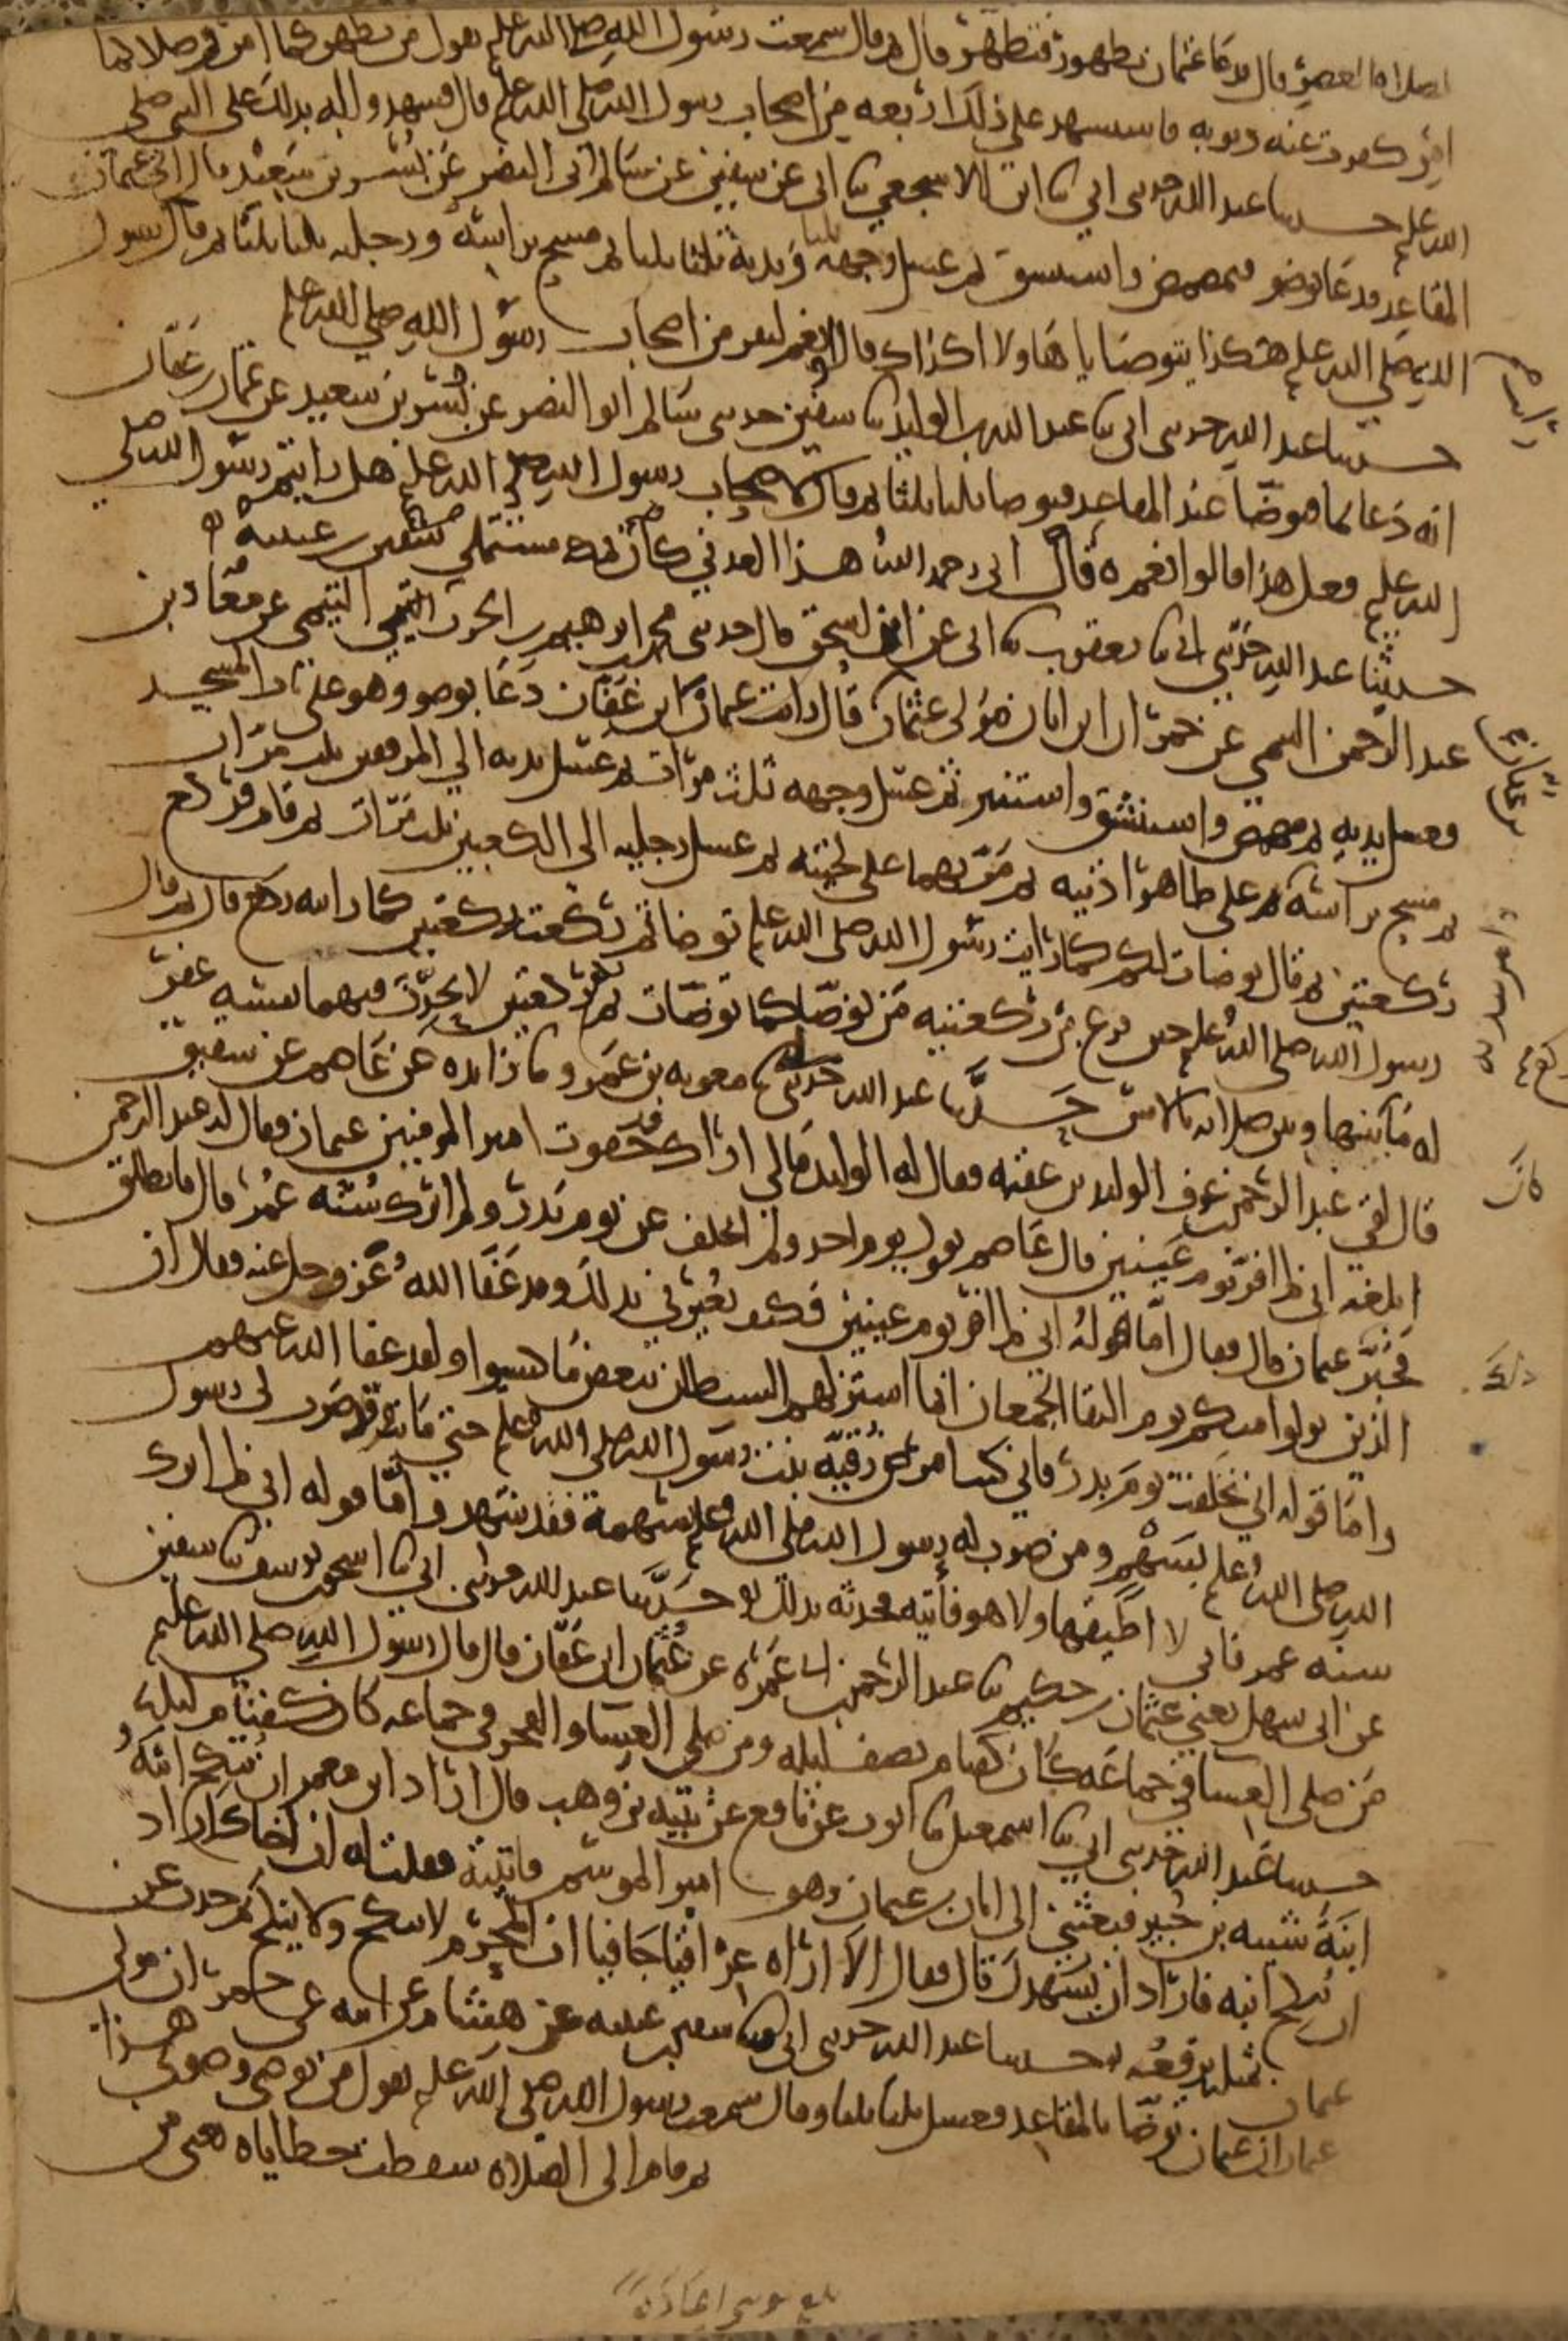 لصلاة العصر قال فدعا عثمان بطهور فتطهر قال ثم قال سمعت رسول الله صلى الله علم يقول من تطهر كما امر وصلا كما
امر كفرت عنه ذنوبه فاستشهد على ذلك اربعه من اصحاب رسول الله صلى الله علم قال فشهدوا له بذلك على النبي صلى
الله علم حدثنا عبد الله حدثني ابي ثنا ابن الاشجعي ثنا ابي عن سفين عن سالم ابي النضر عن بسر بن سعيد قال اتى عثمان
المقاعد فدعا بوضو فمضمض واستنشق ثم غسل وجهه ثلثا ويديه ثلثا ثلثا ثم مسح براسه ورجليه ثلثا ثلثا ثم قال رايت رسول
الله صلى الله علم هكذا يتوضا يا هاولا اكذاك قالوا نعم لنفر من اصحاب رسول الله صلى الله علم
حدثنا عبد الله حدثني ابي ثنا عبد الله بن الوليد ثنا سفين حدثني سالم ابو النضر عن بسر بن سعيد عن عثمان بن عفان
انه دعا بما فتوضا عند المقاعد فتوضا ثلثا ثلثا ثم قال لاصحاب رسول الله صلى الله علم هل رايتم رسول الله صلى
الله علم فعل هذا قالوا نعم ه قال ابي رحمه الله هذا العدني كان بمكه مستملي سفين بن عيينه
حدثنا عبد الله حدثني ابي ثنا يعقوب ثنا ابي عن ابن اسحق قال حدثني محمد بن ابرهيم بن الحرث التيمي عن معاذ بن
عبد الرحمن التيمي عن حمران بن ابان مولى عثمان قال رايت عثمان بن عفان دعا بوضو وهو على باب المسجد
فغسل يديه ثم مضمض واستنشق واستنثر ثم غسل وجهه ثلث مرات ثم غسل يديه الى المرفقين ثلث مرات
ثم مسح براسه ثم على ظاهر اذنيه ثم مر بهما على لحيته ثم غسل رجليه الى الكعبين ثلث مرات ثم قام فركع
ركعتين ثم قال توضات لكم كما رايت رسول الله صلى الله علم توضا ثم ركعت ركعتين كما رايته ركع قال ثم قال
رسول الله صلى الله علم حين فرغ من ركعتيه من توضا كما توضات ثم ركع ركعتين لا يحدث فيهما نفسه غفر
له ما بينهما وبين صلاته بالامس حدثنا عبد الله حدثني ابي ثنا معويه بن عمرو ثنا زايده عن عاصم عن شقيق
قال لقي عبد الرحمن بن عوف الوليد بن عقبه فقال له الوليد مالي اراك قد جفوت امير المومنين عثمان فقال له عبد الرحمن
ابلغه اني لم افر يوم عينين قال عاصم يقول يوم احد ولم اتخلف عن يوم بدر ولم اترك سنه عمر قال فانطلق
فخبر عثمان قال فقال اما قوله اني لم افر يوم عينين فكيف يعيرني بذلك وقد عفا الله عز وجل عنه فقال ان
الذين تولوا منكم يوم التقا الجمعان انما استزلهم الشيطان ببعض ما كسبوا ولقد عفا الله عنهم
واما قوله اني تخلفت يوم بدر فاني كنت امرض رقيه بنت رسول الله صلى الله علم حتى ماتت وقد ضرب لي رسول
الله صلى الله علم بسهم ومن ضرب له رسول الله صلى الله علم بسهمه فقد شهد واما قوله اني لم اترك
سنه عمر فاني لا اطيقها ولا هو فاتيه فحدثه بذلك حدثنا عبد الله حدثني ابي ثنا اسحق بن يوسف ثنا سفين
عن ابي سهل يعني عثمان بن حكيم ثنا عبد الرحمن بن ابي عمره عن عثمان بن عفان قال قال رسول الله صلى الله علم
من صلى العشا في جماعه كان كقيام نصف ليله ومن صلى العشا والفجر في جماعه كان كقيام ليله
حدثنا عبد الله حدثني ابي ثنا اسمعيل ثنا ايوب عن نافع عن نبيه بن وهب قال اراد ابن معمر ان ينكح ابنه
ابنة شيبه بن جبير فبعثني الى ابان بن عثمان وهو امير الموسم فاتيته فقلت له ان اخاك اراد
ان ينكح ابنه فاراد ان يشهدك قال فقال الا اراه عراقيا جافيا ان المحرم لا ينكح ولا ينكح ثم حدث عن
عثمان بمثله يرفعه حدثنا عبد الله حدثني ابي ثنا سفين بن عيينه عن هشام عن ابيه عن حمران مولى
عثمان ان عثمان توضا بالمقاعد فغسل ثلثا ثلثا وقال سمعت رسول الله صلى الله علم يقول من توضى وضوئي هذا
ثم قام الى الصلاه سقطت خطاياه يعني من